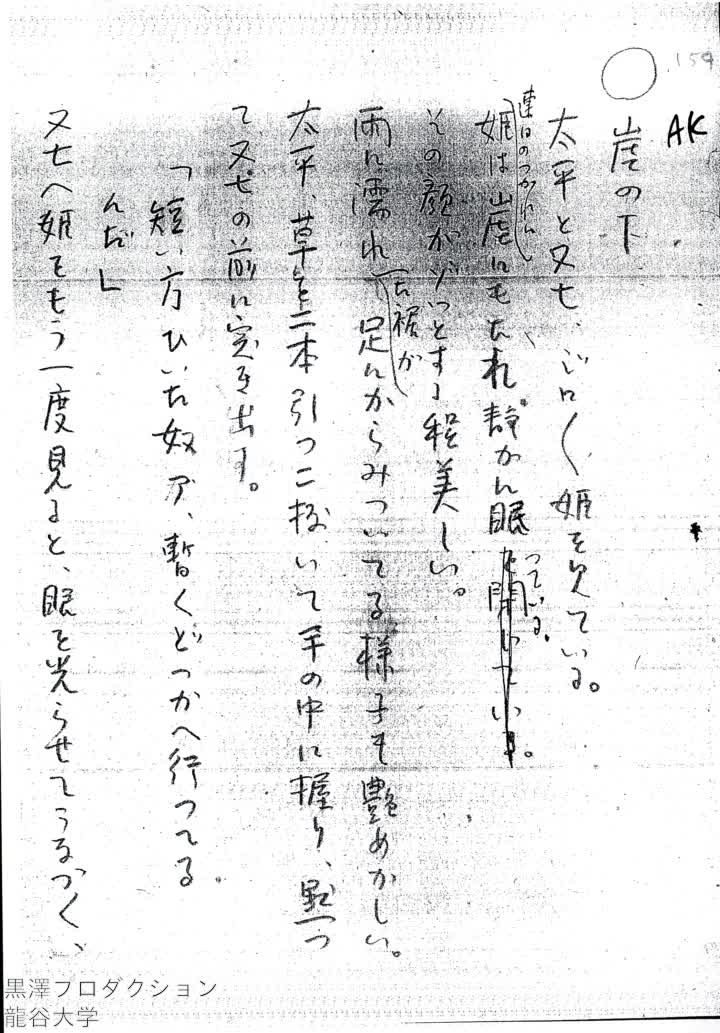 159
AK
崖の下
太平と又七、ジロ〳〵姫を見ている。
連日のつかれに
姫は崖にもたれ、静かに眠っている。
その顔がゾッとする程美しい。
雨に濡れた裾が足にからみついてる様子も艶めかしい。
太平、草を二本引っこ抜いて手の中に握り、黙っ
て又七の前に突き出す。
「短い方ひいた奴ア、暫くどっかへ行ってる
んだ」
又七へ姫をもう一度見ると、眼を光らせてうなづく、
黒澤プロダクション
龍谷大学